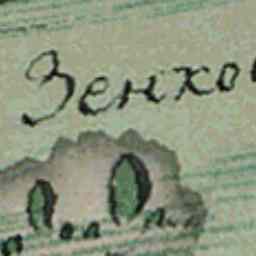 Зенхо